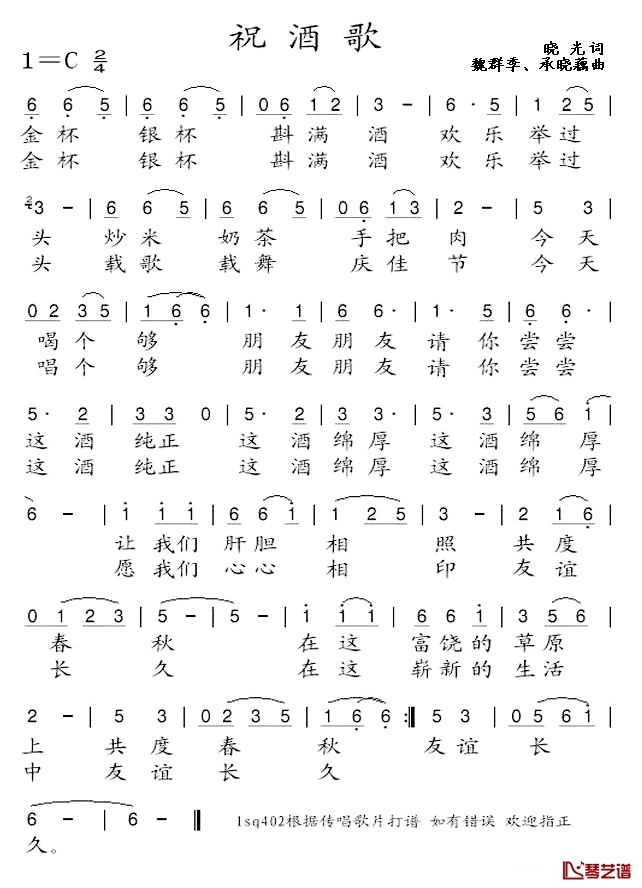 祝酒歌
1=C 2/4
晓光词
魏群季、承晓藕曲
6 6 5 | 6 6 5 | 0 6 1 2 | 3 - | 6 5 | 1 2 5 |
金杯 银杯 斟满 酒 欢乐举过
金杯 银杯 斟满 酒 欢乐举过
2 3 - | 6 6 5 | 6 6 5 | 0 6 1 3 | 2 - | 5 3 |
头 炒米 奶茶 手把 肉 今天
头 载歌 载舞 庆佳 节 今天
0 2 3 5 | 1 6 6 | 1· 1 | 6 6· | 1· 5 | 6 6· |
喝个 够 朋友朋友请你尝尝
唱个 够 朋友朋友请你尝尝
5· 2 | 3 3 0 | 5· 2 | 3 3· | 5· 2 | 5 6 1 |
这酒 纯正 这酒绵厚 这酒绵厚
这酒 纯正 这酒绵厚 这酒绵厚
6 - | 1 1 1 | 6 6 1 | 1 2 5 | 3 - | 2 1 6 |
让 我们 肝胆 相 照 共度
愿 我们 心心 相 印 友谊
0 1 2 3 | 5 - | 5 - | 1 1 1 | 6 6 1 | 5 5 3 |
春 秋 在这 富饶的 草原
长 久 在这 崭新的 生活
2 - | 5 3 | 0 2 3 5 | 1 6 6 :‖ 5 3 | 0 5 6 1 |
上 共度 春 秋 友谊 长
中 友谊 长 久
6 - | 6 - ‖ 1sq402根据传唱歌片打谱 如有错误 欢迎指正
久。
琴艺谱